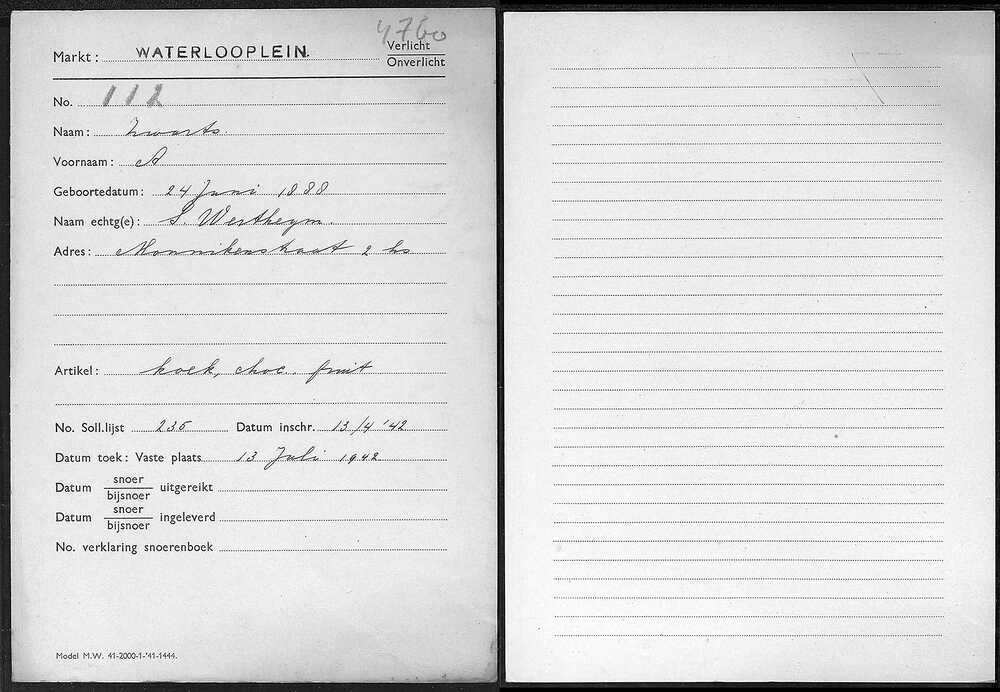 4760
Markt: WATERLOOPLEIN. Verlicht
Onverlicht
No. 112
Naam: Zwarts.
Voornaam: A
Geboortedatum: 24 Juni 1888
Naam echtg(e): S. Wertheym.
Adres: Monnikenstraat 2 hs
Artikel: koek, choc. fruit
No. Soll.lijst 236 Datum inschr. 13/4 '42
Datum toek: Vaste plaats 13 Juli 1942
Datum snoer
bijsnoer uitgereikt
Datum snoer
bijsnoer ingeleverd
No. verklaring snoerenboek
Model M.W. 41-2000-1-'41-1444.